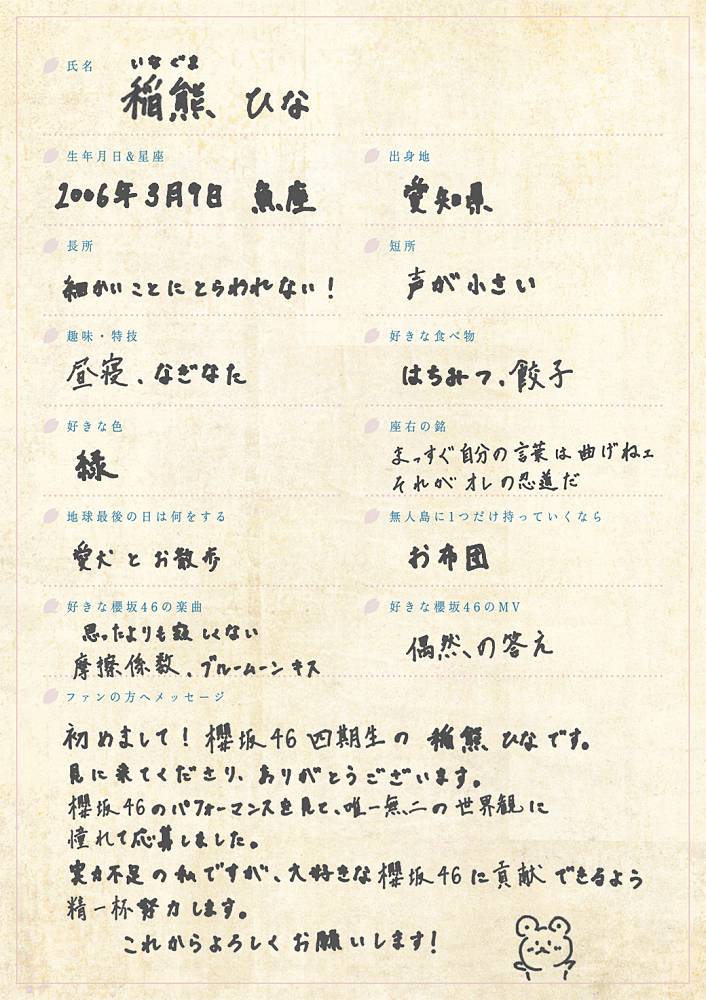 氏名
いなぐま
稲熊 ひな
生年月日&星座
2006年3月9日 魚座
出身地
愛知県
長所
細かいことにとらわれない!
短所
声が小さい
趣味・特技
昼寝、なぎなた
好きな食べ物
はちみつ、餃子
好きな色
緑
座右の銘
まっすぐ自分の言葉は曲げねェ
それがオレの忍道だ
地球最後の日は何をする
愛犬とお散歩
無人島に1つだけ持っていくなら
お布団
好きな櫻坂46の楽曲
思ったよりも寂しくない
摩擦係数、ブルームーンキス
好きな櫻坂46のMV
偶然の答え
ファンの方へメッセージ
初めまして! 櫻坂46四期生の 稲熊ひなです。
見に来てくださり、ありがとうございます。
櫻坂46のパフォーマンスを見て、唯一無二の世界観に
憧れて応募しました。
実力不足の私ですが、大好きな櫻坂46に貢献できるよう
精一杯努力します。
これからよろしくお願いします!